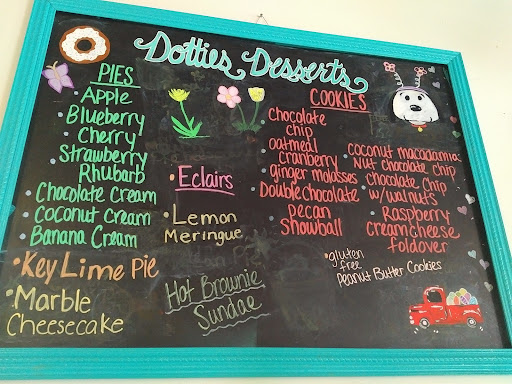 Dotties Desserts
PIES
• Apple
• Blueberry
• Cherry
• Strawberry
Rhubarb
• Chocolate Cream
• Coconut Cream
• Banana Cream
• Key Lime Pie
• Marble
Cheesecake
• Eclairs
• Lemon
Meringue
Hot Brownie
Sundae
COOKIES
chocolate
chip
oatmeal
cranberry
ginger molasses
Double chocolate
pecan
snowball
• coconut macadamia
Nut chocolate chip
• chocolate chip
w/walnuts
• Raspberry
creamcheese
foldover
• gluten
free
Peanut Butter Cookies